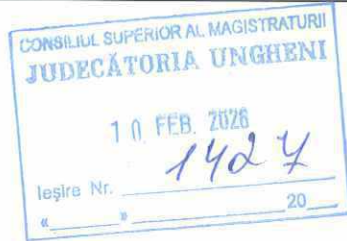 CONSILIUL SUPERIOR AL MAGISTRATURII
JUDECĂTORIA UNGHENI
10 FEB. 2026
Ieșire Nr. 1427
«___»___20___